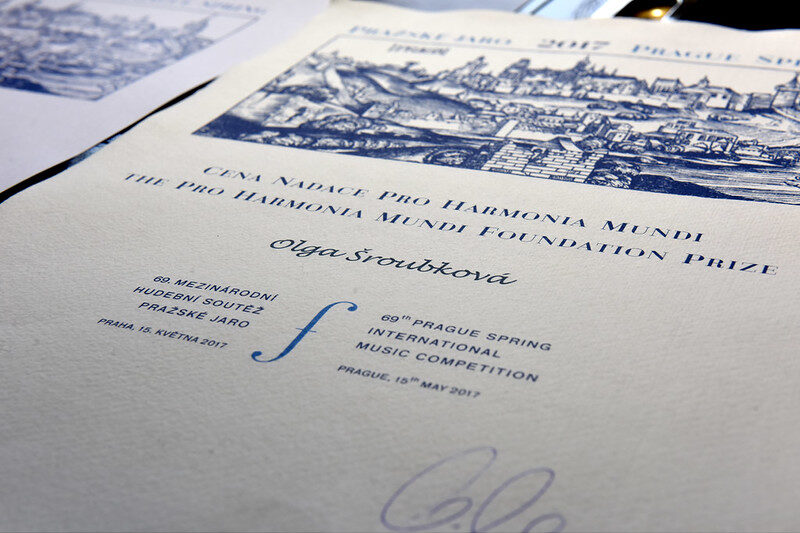 PRAŽSKÉ JARO 2017 PRAGUE SPR
CENA NADACE PRO HARMONIA MUNDI
THE PRO HARMONIA MUNDI FOUNDATION PRIZE
Olga Šroubková
69. MEZINÁRODNÍ
HUDEBNÍ SOUTĚŽ
PRAŽSKÉ JARO
PRAHA, 15. KVĚTNA 2017
f
69th PRAGUE SPRING
INTERNATIONAL
MUSIC COMPETITION
PRAGUE, 15th MAY 2017